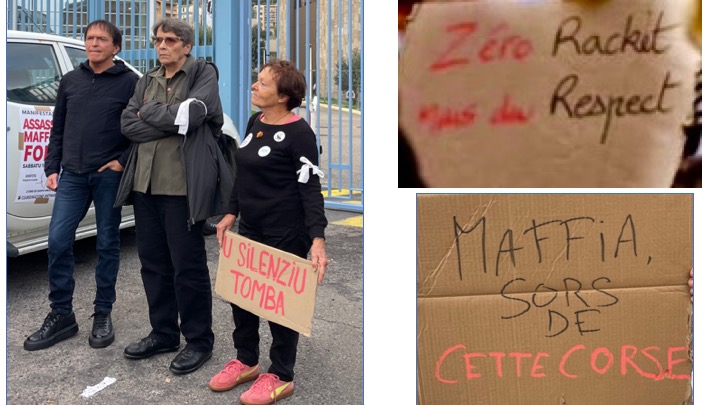 MANIFESTA
ASSASS
MAFF
FO
SABBATU
U SILENZIU
TOMBA
Zéro Racket
Mais du Respect
MAFFIA,
SORS
DE
CETTE CORSE